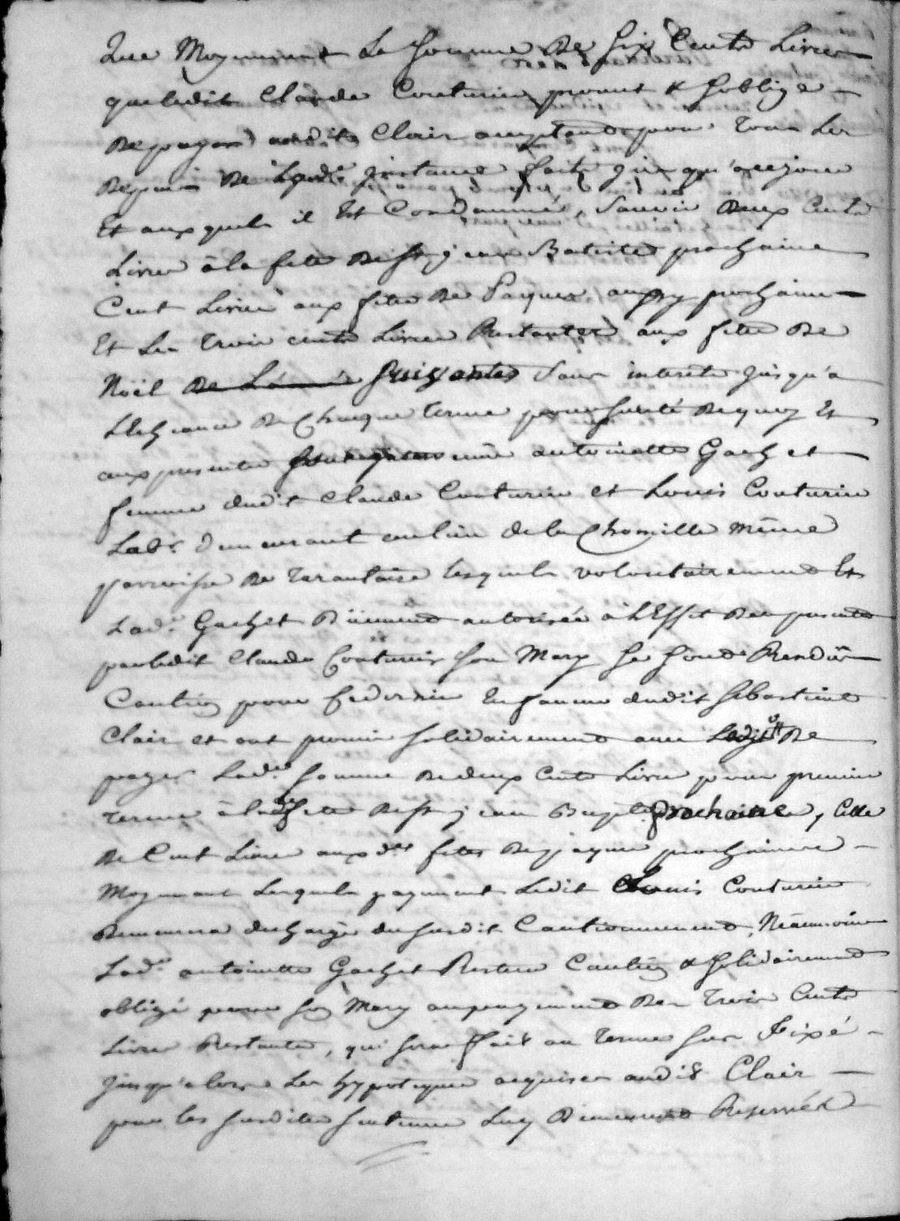 que Moyennant La Somme de Six Cents Livres
que ledit Claude Couturier promet & s'oblige
de payer audit Clair acceptant pour Tous Les
depens de Lad.e instance faits jusqu'a ce jour
Et auxquels il Est Condamné, Sauoir deux Cents
Livres à la fete de St jean Batiste prochaine
Cent Livres aux fetes de Paques aussy prochaine
Et Les Trois cents Livres Restantes aux fetes de
Noël suivantes Sans interets jusqu'a
L'Echeance de Chaque terme pour sureté de quoy Et
aux presentes antoinette Gachet
femme dudit Claude Couturier et Louis Couturier
Lab.r demeurant au lieu de la Chomille même
parroisse de tarantaise lesquels volontairement Et
Lad.e Gachet duement autorisée à l'Effet des presentes
par ledit Claude Couturier son Mary se sont Rendus
Caution pour ce dernier En faveur dudit Sebastien
Clair et ont promis solidairement avec de
payer Lad.e somme de deux Cents Livres pour premier
terme à lad.e fete de St jean Baptiste prochaine, Celle
de Cent Livres auxd.es fetes de paques prochaines
Moyennant Lesquels payments Ledit Louis Couturier
demeurera dechargé du susdit Cautionnement, Néanmoins
Lad.e antoinette Gachet Restera Caution & solidairement
obligé pour son Mary au payement des Trois Cents
Livres Restantes, qui sera fait au terme sus fixé
jusqu'alors Les hypoteques acquises audit Clair
pour les susdites sentences Luy demeurent Reservées